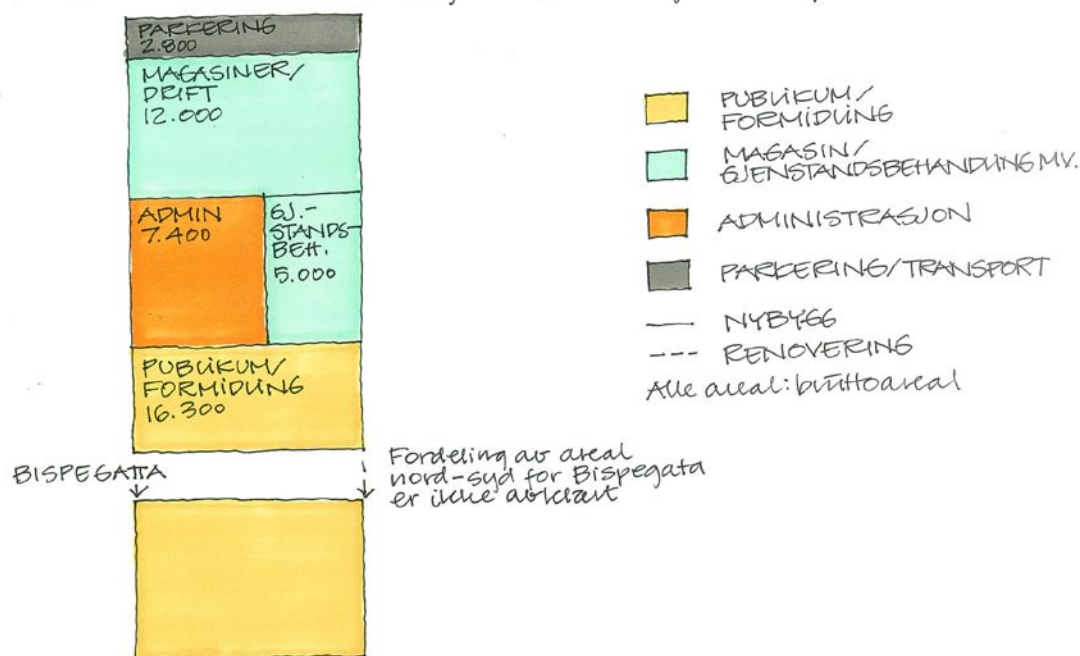 PARKERING
2.800
MAGASINER/
DRIFT
12.000
ADMIN
7.400
GJ.-
STANDS-
BEH.
5.000
PUBLIKUM/
FORMIDLING
16.300
BISPEGATTA
Fordeling av areal
nord-syd for Bispegata
er ikke avklart
PUBLIKUM/
FORMIDLING
MAGASIN/
GJENSTANDSBEHANDLING MV.
ADMINISTRASJON
PARKERING/TRANSPORT
NYBYGG
RENOVERING
Alle areal: bruttoareal